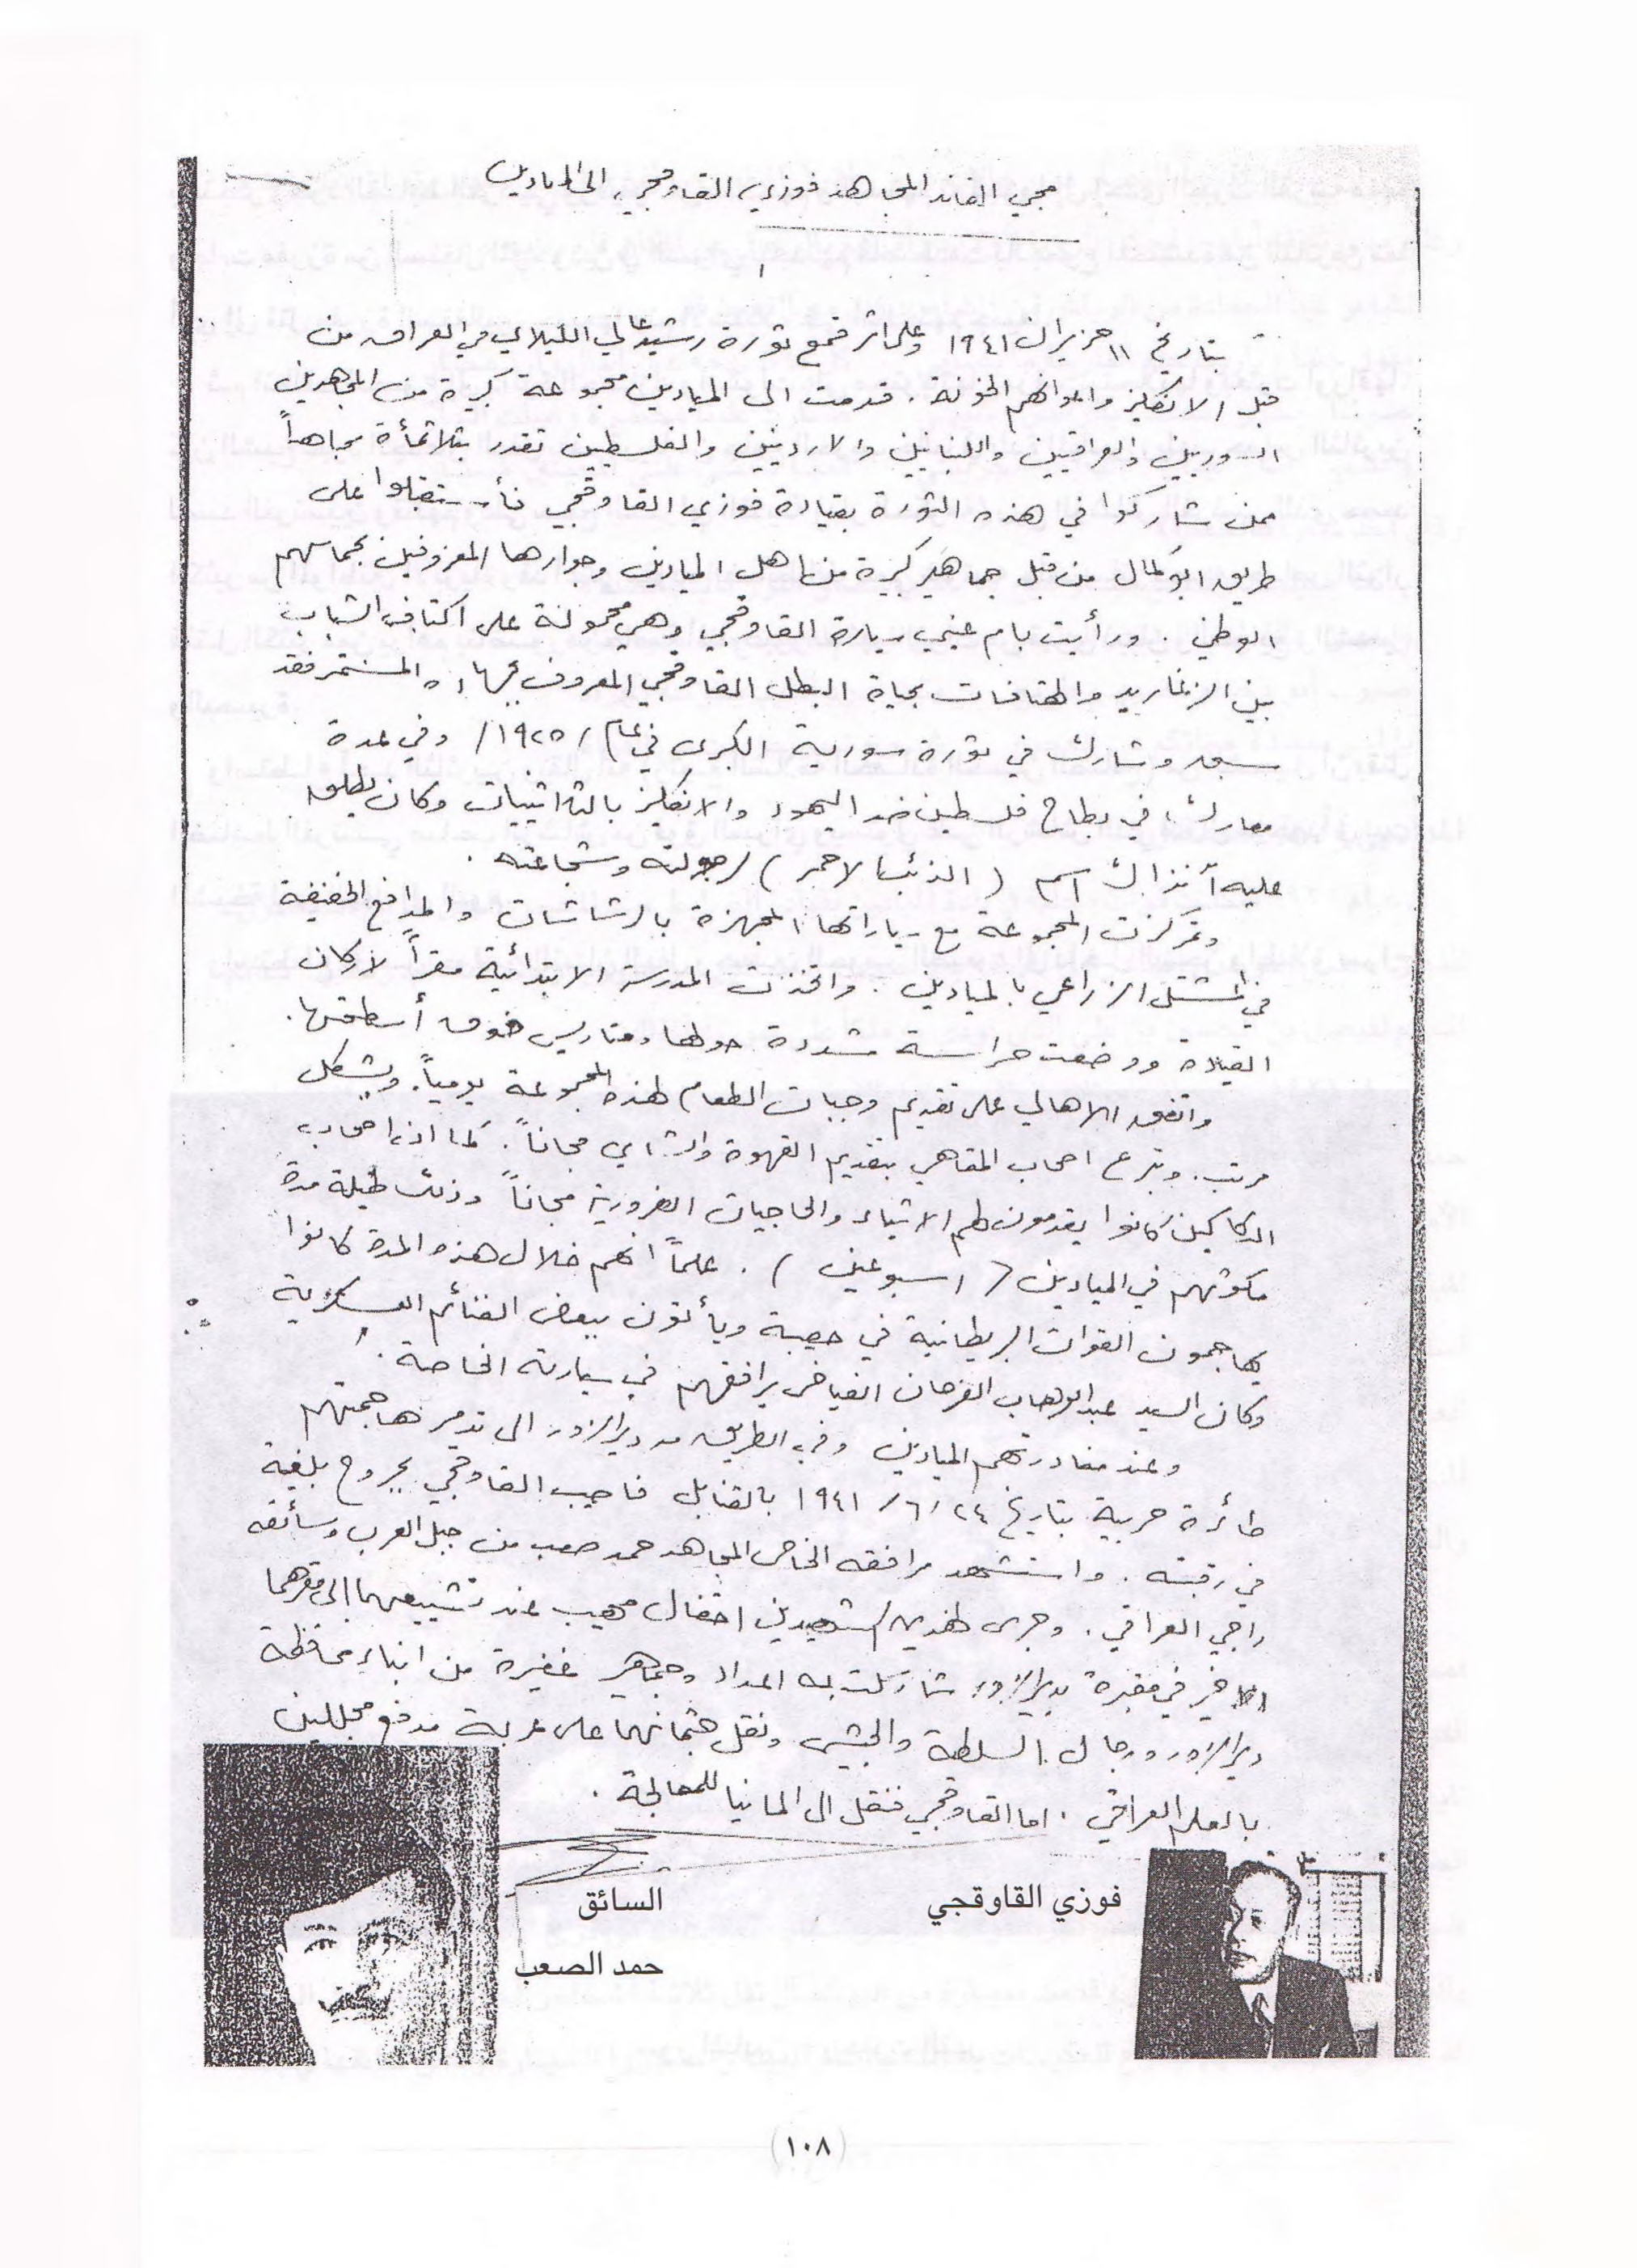 مجي القائد المجاهد فوزي القاوقجي الى الميادين
بتاريخ ١١ حزيران ١٩٤١ وعلى اثر قمع ثورة رشيد عالي الكيلاني في العراق من
قبل الانكليز واعوانهم الخونة . قدمت الى الميادين مجموعة كبيرة من المجاهدين
السوريين والعراقيين واللبنانيين والاردنيين والفلسطين تقدر بثلاثمأة مجاهداً
ممن شاركوا في هذه الثورة بقيادة فوزي القاوقجي فأستقبلوا على
طريق ابوكمال من قبل جماهير كبيرة من اهل الميادين وجوارها المعروفين بحماسهم
الوطني . ورأيت بام عيني سيارة القاوقجي وهي محمولة على اكتاف الشباب
بين الزغاريد والهتافات بحياة البطل القاوقجي المعروف بجهاده المستمر فقد
سبق وشارك في ثورة سورية الكبرى في عام /١٩٢٥/ وفي عدة
معارك في بطاح فلسطين ضد اليهود والانكليز بالثلاثينيات وكان يطلق
عليه آنذاك اسم ( الذئب الاحمر ) لرجولته وشجاعته .
وتمركزت المجموعة مع سياراتها المجهزة بالرشاشات والمدافع الخفيفة
في المشتل الزراعي بالميادين . واتخذت المدرسة الابتدائية مقراً لاركان
القيادة ووضعت حراسة مشددة حولها ومتاريس فوق أسطحتها .
واتفق الاهالي على تقديم وجبات الطعام لهذه المجموعة يومياً . وبشكل
مرتب . وتبرع اصحاب المقاهي بتقديم القهوة والشاي مجاناً . كما ان اصحاب
الدكاكين كانوا يقدمون لهم الاشياء والحاجيات الضرورية مجاناً وذلك طيلة مدة
مكوثهم في الميادين ( اسبوعين ) . علماً انهم خلال هذه المدة كانوا
يهاجمون القوات البريطانية في حصيبة ويأتون ببعض الغنائم العسكرية
وكان السيد عبد الوهاب الفرحان الفياض يرافقهم في سيارته الخاصة .
وعند مغادرتهم الميادين وفي الطريق من ديرالزور الى تدمر هاجمتهم
طائرة حربية بتاريخ ٢٤ /٦/ ١٩٤١ بالقنابل فاصيب القاوقجي بجروح بليغة
في رقبته . واستشهد مرافقه الخاص المجاهد حمد صعب من جبل العرب وسائقه
راجي العراقي . وجرى لهذين الشهيدين احتفال مهيب عند تشييعهما الى مقرهما
الاخير في مقبرة بديرالزور شاركت به اعداد وجماهير غفيرة من ابناء محافظة
ديرالزور ورجال السلطة والجيش ونقل جثمانهما على عربة مدفع مجللين
بالعلم العراقي . اما القاوقجي فنقل الى المانيا للمعالجة .
فوزي القاوقجي
السائق
حمد الصعب
(١٠٨)